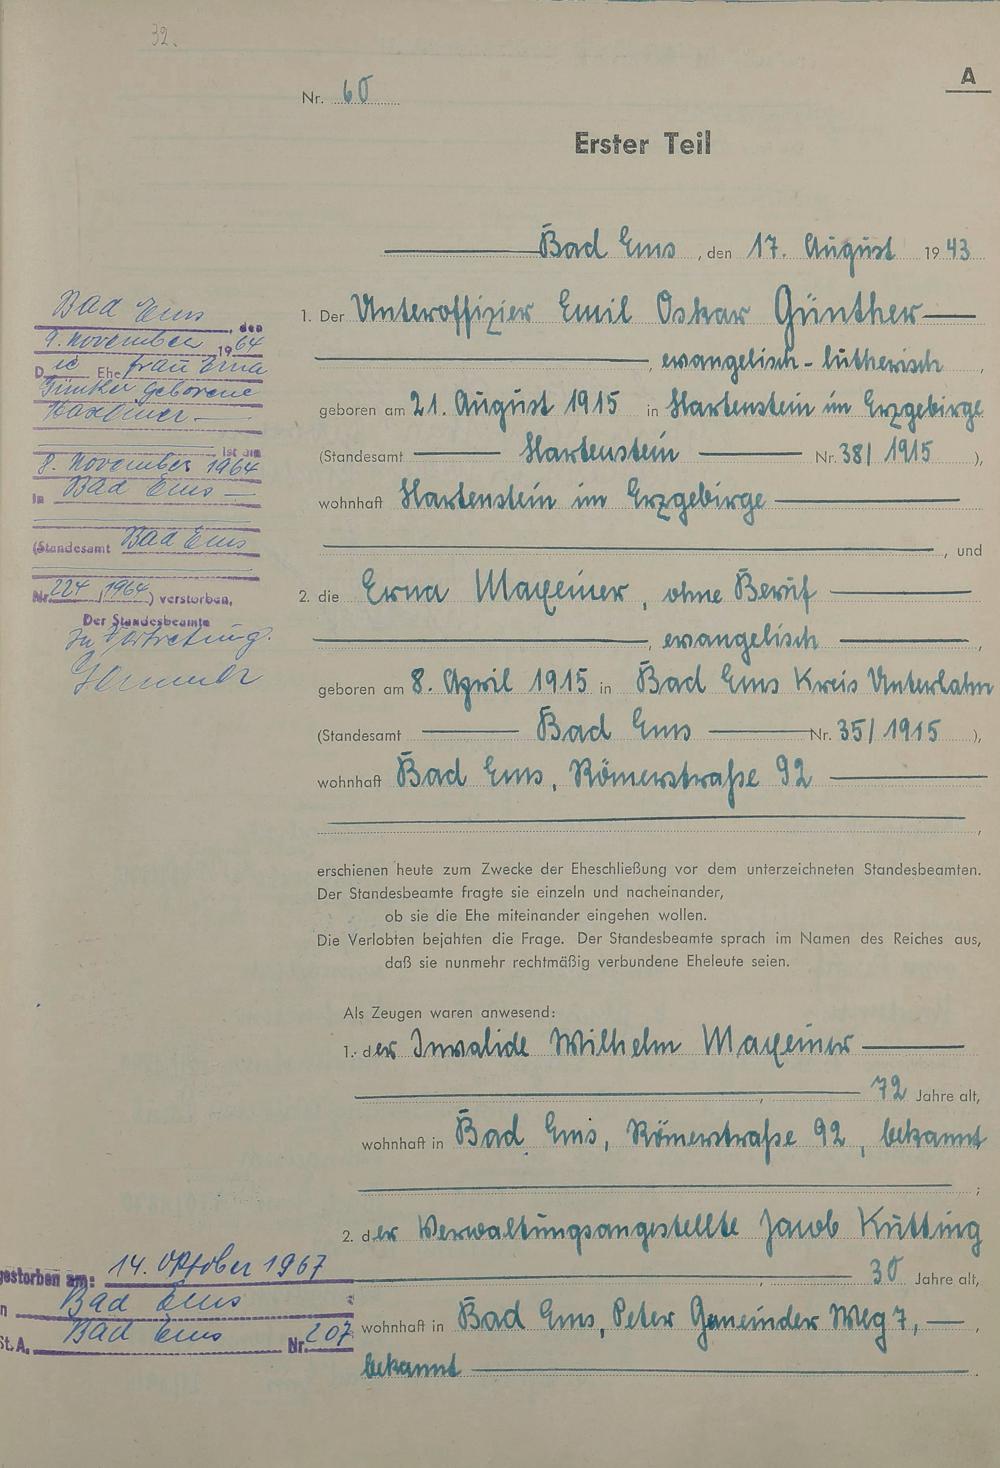 32.
A
Nr. 60
Erster Teil
Bad Ems, den 17. August 1943
1. Der Unteroffizier Emil Oskar Günther
, evangelisch-lutherisch,
geboren am 21. August 1915 in Hartenstein im Erzgebirge
(Standesamt Hartenstein Nr. 38/1915),
wohnhaft Hartenstein im Erzgebirge
, und
2. die Erna Maxeiner, ohne Beruf
, evangelisch,
geboren am 8. April 1915 in Bad Ems Kreis Unterlahn
(Standesamt Bad Ems Nr. 35/1915),
wohnhaft Bad Ems, Römerstraße 92
,
erschienen heute zum Zwecke der Eheschließung vor dem unterzeichneten Standesbeamten.
Der Standesbeamte fragte sie einzeln und nacheinander,
ob sie die Ehe miteinander eingehen wollen.
Die Verlobten bejahten die Frage. Der Standesbeamte sprach im Namen des Reiches aus,
daß sie nunmehr rechtmäßig verbundene Eheleute seien.
Als Zeugen waren anwesend:
1. der Invalide Wilhelm Maxeiner
, 72 Jahre alt,
wohnhaft in Bad Ems, Römerstraße 92, bekannt
;
2. der Verwaltungsangestellte Jacob Kutting
, 30 Jahre alt,
wohnhaft in Bad Ems, Peter Gemeinder Weg 7,
bekannt
Bad Ems, den
9. November 1964
Die Ehefrau Erna
geborene
ist am
8. November 1964
in Bad Ems
(Standesamt Bad Ems
Nr. 224/1964) verstorben.
Der Standesbeamte
In Vertretung.
gestorben am: 14. Oktober 1967
in Bad Ems
St.A. Bad Ems Nr. 207